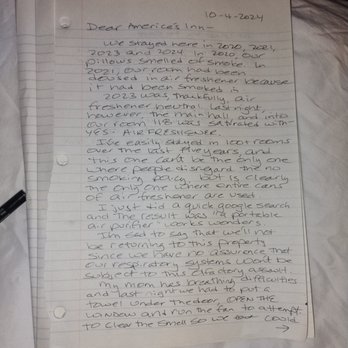 10-4-2024
Dear America's Inn-
We stayed here in 2020, 2021,
2023 and 2024. In 2020, our
pillows smelled of smoke. In
2021, our room had been
doused in air freshener because
it had been smoked in.
2023 was, thankfully, air
freshener neutral. Last night,
however, the main hall, and into
our room, 118 was saturated with-
YES- AIR FRESHENER.
I've easily stayed in 100 rooms
over the last five years, and
this one can't be the only one
where people disregard the no
smoking policy but is clearly
the only one where entire cans
of air freshener are used.
I just did a quick google search
and the result was "a portable
air purifier" works wonders.
I'm sad to say that we'll not
be returning to this property
since we have no assurance that
our respiratory systems won't be
subject to this olfactory assault.
My mom has breathing difficulties
and last night we had to put a
towel under the door, OPEN THE
window and run the fan to attempt
to clear the smell so we could